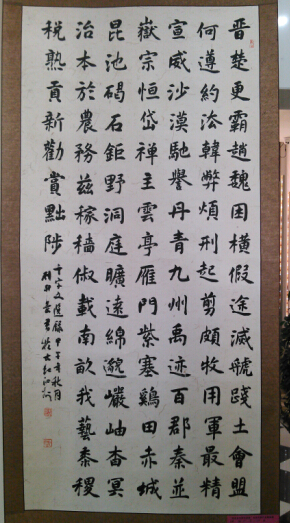 晉楚更霸趙魏困橫假途滅虢踐土會盟
何遵約法韓弊煩刑起剪頗牧用軍最精
宣威沙漠馳譽丹青九州禹迹百郡秦並
嶽宗恒岱禪主雲亭雁門紫塞鷄田赤城
昆池碣石鉅野洞庭曠遠綿邈巖岫杳冥
治本於農務茲稼穡俶載南畝我藝黍稷
稅熟貢新勸賞黜陟
千字文選錄 秋月